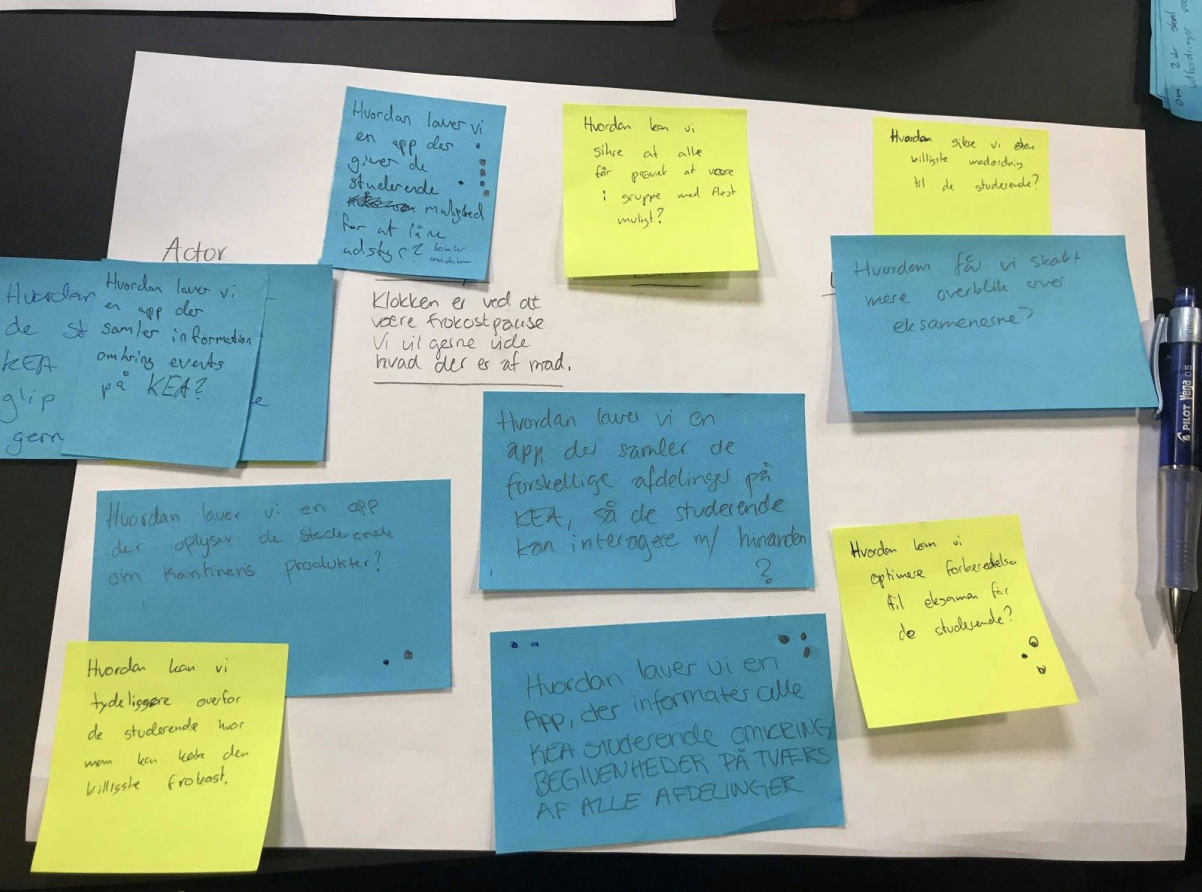 Hvordan laver vi
en app der
giver de
studerende
mulighed
for at låne
udstyr?
Hvordan kan vi
sikre at alle
får prøvet at være
i gruppe med flest
muligt?
Hvordan sikre vi den
billigste madordning
til de studerende?
om 2 år skal
Actor
Hvordan
de st
KEA
glip
gern
Hvordan laver vi
en app der
samler information
omkring events
på KEA?
e
Klokken er ved at
være frokostpause
Vi vil gerne vide
hvad der er af mad.
Hvordan får vi skabt
mere overblik over
eksamenerne?
PILOT Vega 0.5
Hvordan laver vi en
app, der samler de
forskellige afdelinger på
KEA, så de studerende
kan interagere m/ hinanden
?
Hvordan laver vi en app
der oplyser de studerende
om kantinens produkter?
Hvordan kan vi
optimere forberedelse
til eksamen for
de studerende?
Hvordan kan vi
tydeliggøre overfor
de studerende hvor
man kan købe den
billigste frokost.
Hvordan laver vi en
App, der informater alle
KEA STUDERENDE OMKRING
BEGIVENHEDER PÅ TVÆRS
AF ALLE AFDELINGER